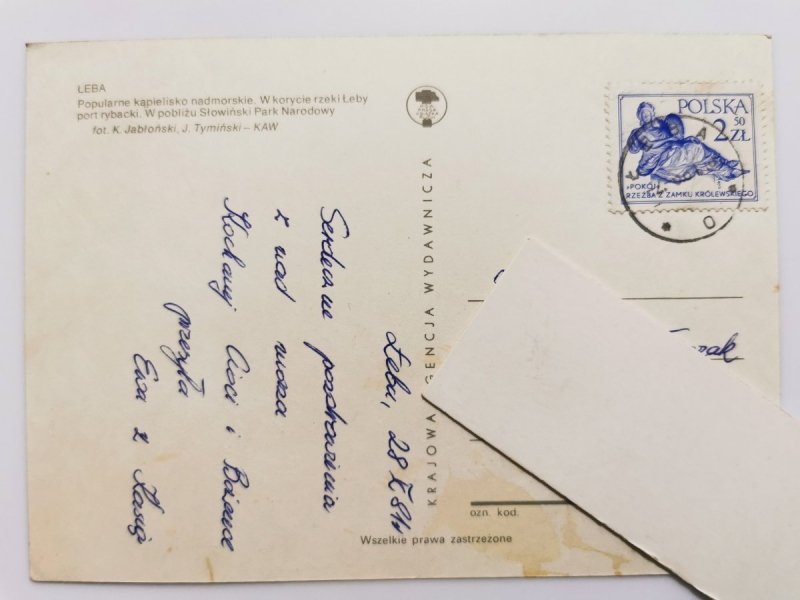 ŁEBA
Popularne kąpielisko nadmorskie. W korycie rzeki Łeby
port rybacki. W pobliżu Słowiński Park Narodowy
fot. K. Jabłoński, J. Tymiński – KAW
Łeba, 28
Serdeczne pozdrowienia
z nad morza
Kochanej Cioci i Bożence
przesyła
Ewa z Kasią
KRAJOWA AGENCJA WYDAWNICZA
POLSKA
2 50 ZŁ
»POKÓJ«
RZEŹBA Z ZAMKU KRÓLEWSKIEGO
ŁEBA
ozn. kod.
Wszelkie prawa zastrzeżone